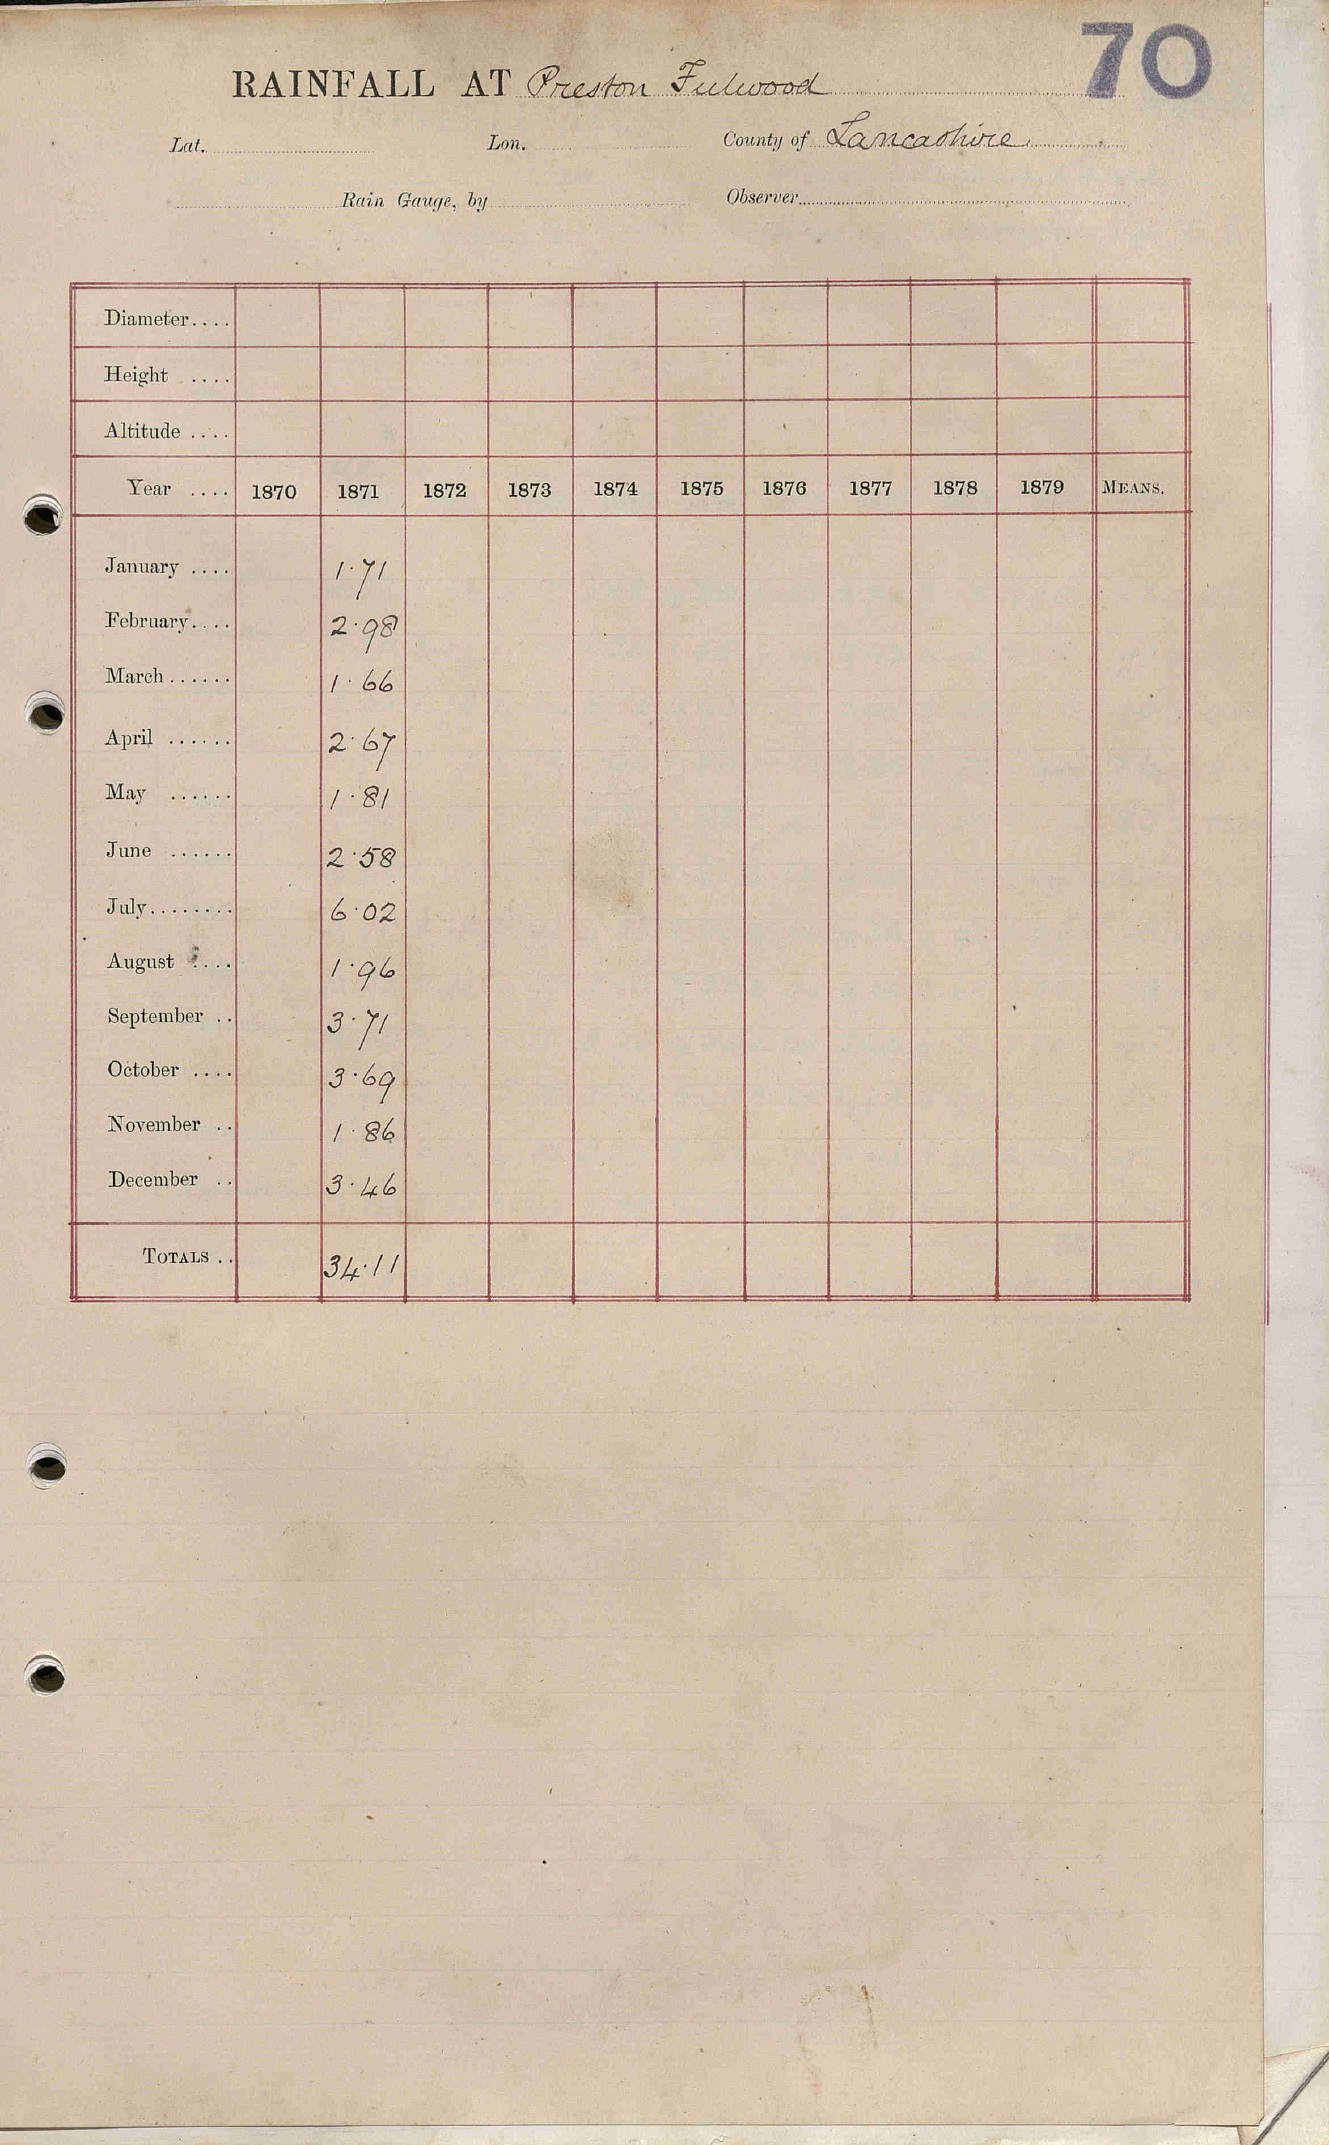 70
RAINFALL AT Preston Fulwood
Lat. Lon. County of Lancashire
Rain Gauge, by Observer
Diameter....
Height ....
Altitude ....
Year .... 1870 1871 1872 1873 1874 1875 1876 1877 1878 1879 MEANS.
January .... 1.71
February.... 2.98
March...... 1.66
April ...... 2.67
May ...... 1.81
June ...... 2.58
July........ 6.02
August .... 1.96
September .. 3.71
October .... 3.69
November .. 1.86
December .. 3.46
TOTALS .. 34.11